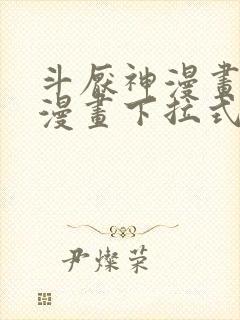 斗厭神漫畫
漫畫下拉式
尹燦榮